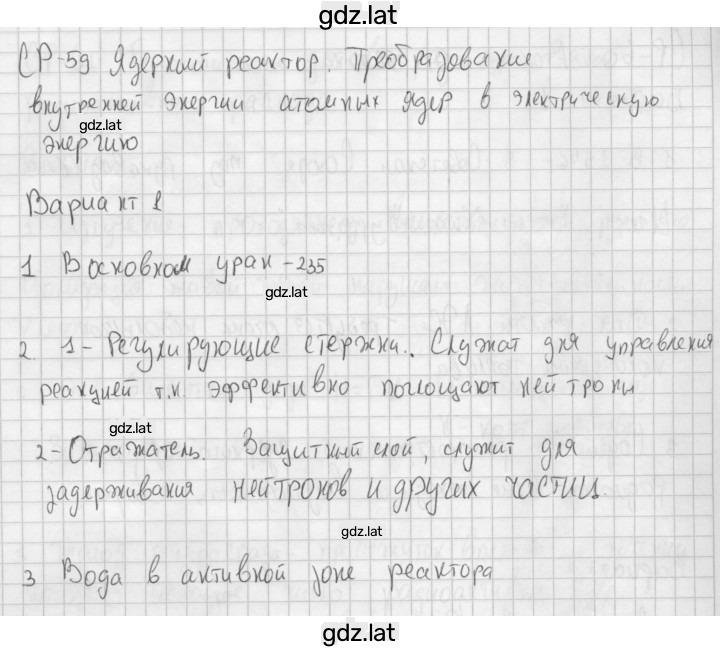 gdz.lat
СР-59 Ядерный реактор. Преобразование
внутренней энергии атомных ядер в электрическую
gdz.lat
энергию
Вариант 1
1 В основном уран-235
gdz.lat
2. 1- Регулирующие стержни.. Служат для управления
реакцией т.к. эффективно поглощают нейтроны
gdz.lat
2- Отражатель. Защитный слой, служит для
задерживания нейтронов и других частиц.
gdz.lat
3 Вода в активной зоне реактора
gdz.lat